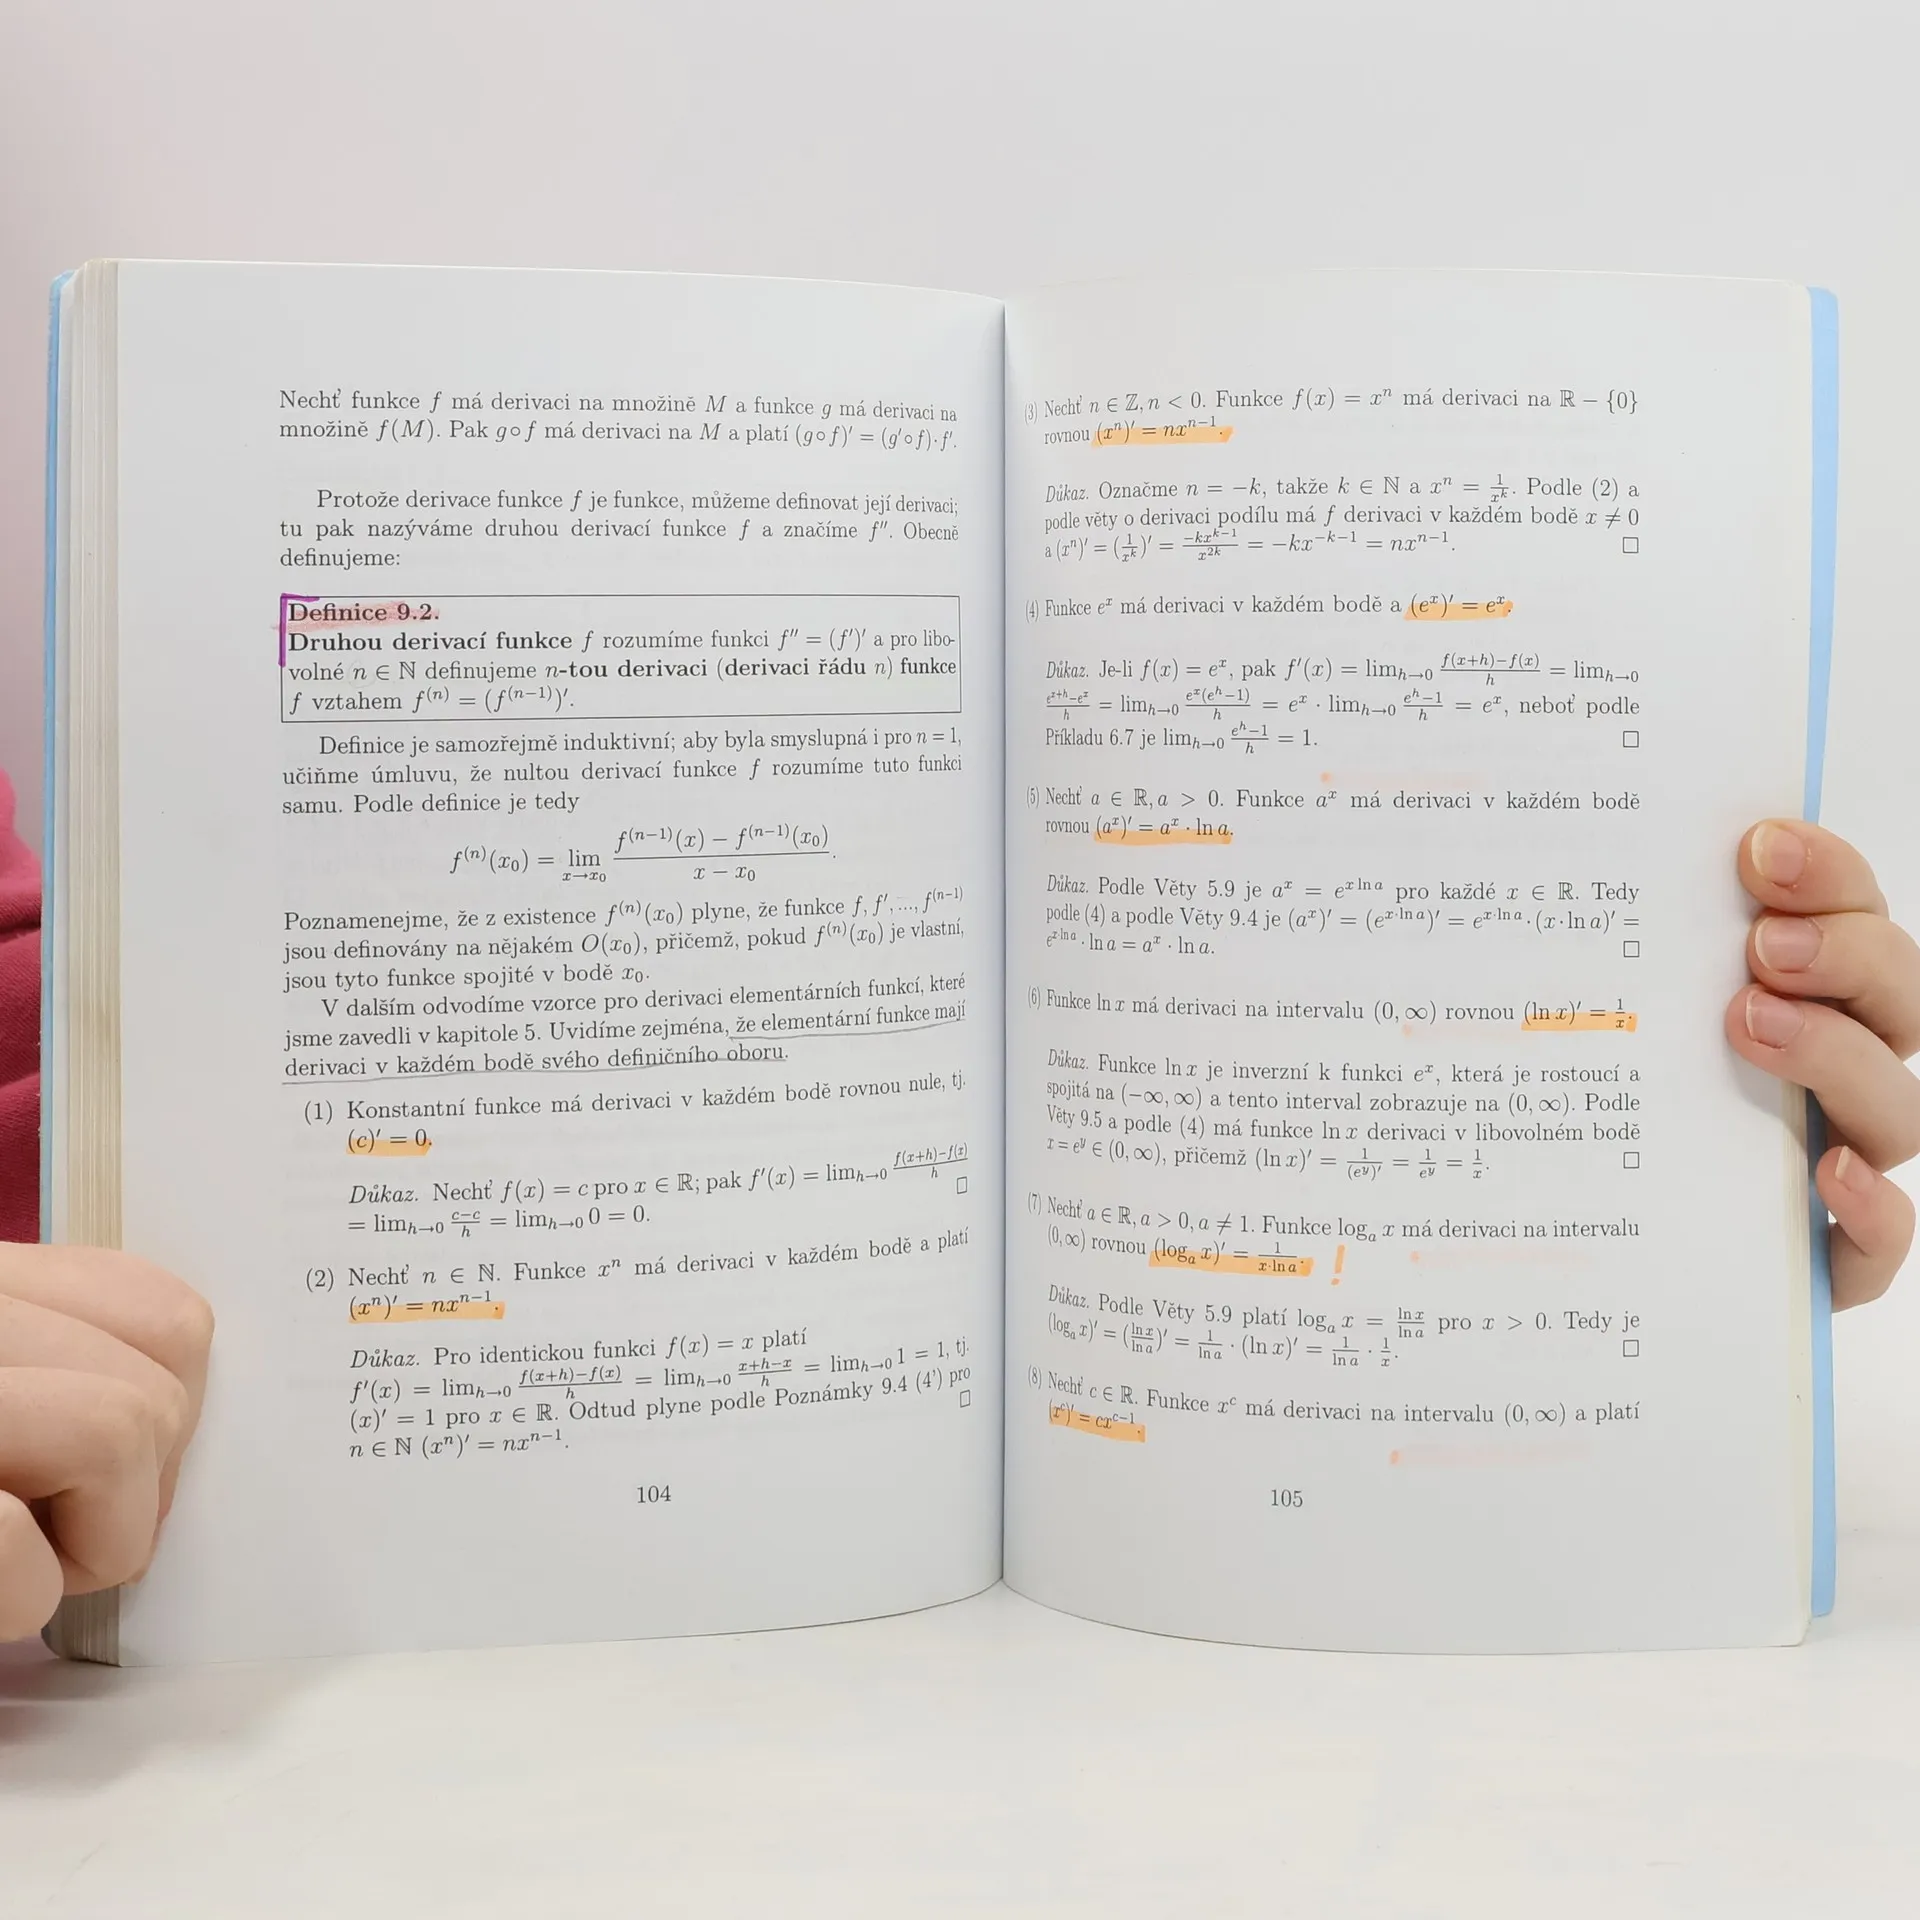 Nechť funkce f má derivaci na množině M a funkce g má derivaci na
množině f(M). Pak g∘f má derivaci na M a platí (g∘f)′ = (g′∘f)·f′.
Protože derivace funkce f je funkce, můžeme definovat její derivaci;
tu pak nazýváme druhou derivací funkce f a značíme f″. Obecně
definujeme:
Definice 9.2.
Druhou derivací funkce f rozumíme funkci f″ = (f′)′ a pro libo-
volné n ∈ ℕ definujeme n-tou derivaci (derivaci řádu n) funkce
f vztahem f⁽ⁿ⁾ = (f⁽ⁿ⁻¹⁾)′.
Definice je samozřejmě induktivní; aby byla smyslupná i pro n = 1,
učiňme úmluvu, že nultou derivací funkce f rozumíme tuto funkci
samu. Podle definice je tedy
f⁽ⁿ⁾(x₀) = lim_{x→x₀} (f⁽ⁿ⁻¹⁾(x) − f⁽ⁿ⁻¹⁾(x₀))/(x − x₀).
Poznamenejme, že z existence f⁽ⁿ⁾(x₀) plyne, že funkce f, f′, ..., f⁽ⁿ⁻¹⁾
jsou definovány na nějakém O(x₀), přičemž, pokud f⁽ⁿ⁾(x₀) je vlastní,
jsou tyto funkce spojité v bodě x₀.
V dalším odvodíme vzorce pro derivaci elementárních funkcí, které
jsme zavedli v kapitole 5. Uvidíme zejména, že elementární funkce mají
derivaci v každém bodě svého definičního oboru.
(1) Konstantní funkce má derivaci v každém bodě rovnou nule, tj.
(c)′ = 0.
Důkaz. Nechť f(x) = c pro x ∈ ℝ; pak f′(x) = lim_{h→0} (f(x+h)−f(x))/h
= lim_{h→0} (c−c)/h = lim_{h→0} 0 = 0. □
(2) Nechť n ∈ ℕ. Funkce xⁿ má derivaci v každém bodě a platí
(xⁿ)′ = nxⁿ⁻¹.
Důkaz. Pro identickou funkci f(x) = x platí
f′(x) = lim_{h→0} (f(x+h)−f(x))/h = lim_{h→0} (x+h−x)/h = lim_{h→0} 1 = 1, tj.
(x)′ = 1 pro x ∈ ℝ. Odtud plyne podle Poznámky 9.4 (4') pro
n ∈ ℕ (xⁿ)′ = nxⁿ⁻¹. □
104
(3) Nechť n ∈ ℤ, n < 0. Funkce f(x) = xⁿ má derivaci na ℝ − {0}
rovnou (xⁿ)′ = nxⁿ⁻¹.
Důkaz. Označme n = −k, takže k ∈ ℕ a xⁿ = 1/xᵏ. Podle (2) a
podle věty o derivaci podílu má f derivaci v každém bodě x ≠ 0
a (xⁿ)′ = (1/xᵏ)′ = (−kxᵏ⁻¹)/x²ᵏ = −kx⁻ᵏ⁻¹ = nxⁿ⁻¹. □
(4) Funkce eˣ má derivaci v každém bodě a (eˣ)′ = eˣ.
Důkaz. Je-li f(x) = eˣ, pak f′(x) = lim_{h→0} (f(x+h)−f(x))/h = lim_{h→0}
(eˣ⁺ʰ−eˣ)/h = lim_{h→0} (eˣ(eʰ−1))/h = eˣ · lim_{h→0} (eʰ−1)/h = eˣ, neboť podle
Příkladu 6.7 je lim_{h→0} (eʰ−1)/h = 1. □
(5) Nechť a ∈ ℝ, a > 0. Funkce aˣ má derivaci v každém bodě
rovnou (aˣ)′ = aˣ · ln a.
Důkaz. Podle Věty 5.9 je aˣ = e^{x ln a} pro každé x ∈ ℝ. Tedy
podle (4) a podle Věty 9.4 je (aˣ)′ = (e^{x·ln a})′ = e^{x·ln a} · (x · ln a)′ =
e^{x·ln a} · ln a = aˣ · ln a. □
(6) Funkce ln x má derivaci na intervalu (0, ∞) rovnou (ln x)′ = 1/x.
Důkaz. Funkce ln x je inverzní k funkci eˣ, která je rostoucí a
spojitá na (−∞, ∞) a tento interval zobrazuje na (0, ∞). Podle
Věty 9.5 a podle (4) má funkce ln x derivaci v libovolném bodě
x = eʸ ∈ (0, ∞), přičemž (ln x)′ = 1/(eʸ)′ = 1/eʸ = 1/x. □
(7) Nechť a ∈ ℝ, a > 0, a ≠ 1. Funkce logₐ x má derivaci na intervalu
(0, ∞) rovnou (logₐ x)′ = 1/(x·ln a). !
Důkaz. Podle Věty 5.9 platí logₐ x = ln x/ln a pro x > 0. Tedy je
(logₐ x)′ = (ln x/ln a)′ = 1/ln a · (ln x)′ = 1/ln a · 1/x. □
(8) Nechť c ∈ ℝ. Funkce xᶜ má derivaci na intervalu (0, ∞) a platí
(xᶜ)′ = cxᶜ⁻¹.
105